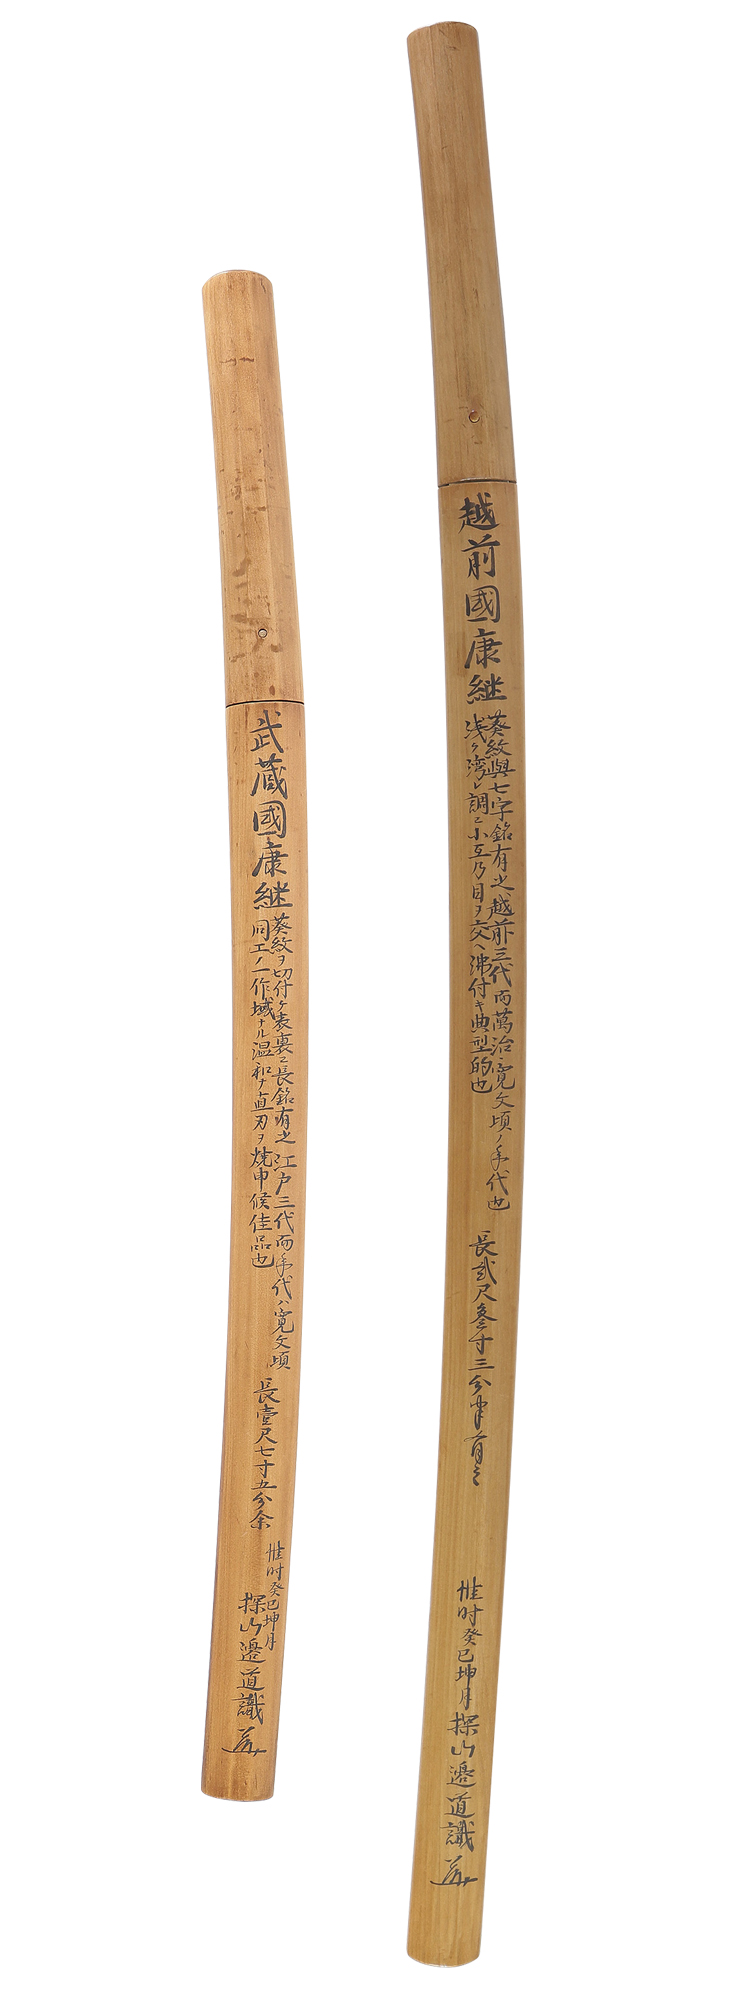 越前國康継
葵紋與七字銘有之越前三代而萬治寛文頃ノ年代也
浅ク湾レ調ニ小互乃目ヲ交ヘ沸付キ典型的也
長貳尺参寸三分半有之
惟时癸巳坤月
探山邉道識
武蔵國康継
葵紋ヲ切付ケ表裏ニ長銘有之江戸三代而年代ハ寛文頃
同工ノ一作域ナル温和ナ直刃ヲ焼申候佳品也
長壹尺七寸五分余
惟时癸巳坤月
探山邉道識